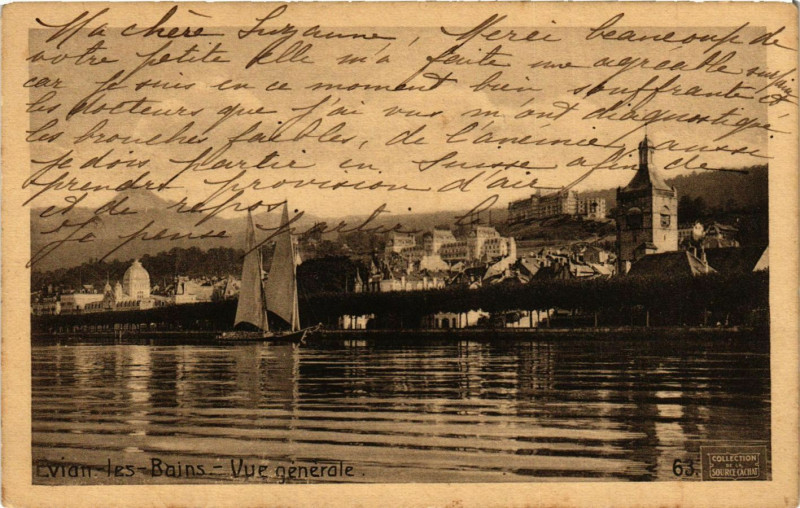 Ma chère Suzanne, Merci beaucoup de
votre petite elle m'a faite une agréable surprise
car je suis en ce moment bien souffrante et
les docteurs que j'ai vus m'ont diagnostiqué
les bronches faibles, de l'anémie, aussi
je dois partir en Suisse afin de
prendre provision d'air
et de repos
Je pense partir le
Evian-les-Bains - Vue générale.
63.
COLLECTION
DE LA
SOURCE CACHAT